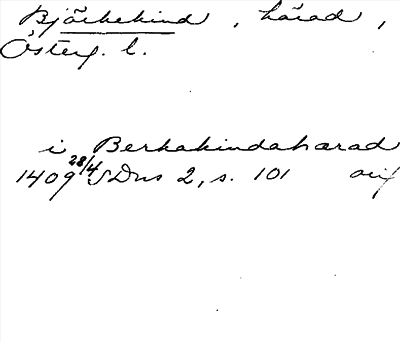 Björkekind, härad,
Österg. l.
i Berkakindaharad
1409 28/4 SDns 2, s. 101 avf